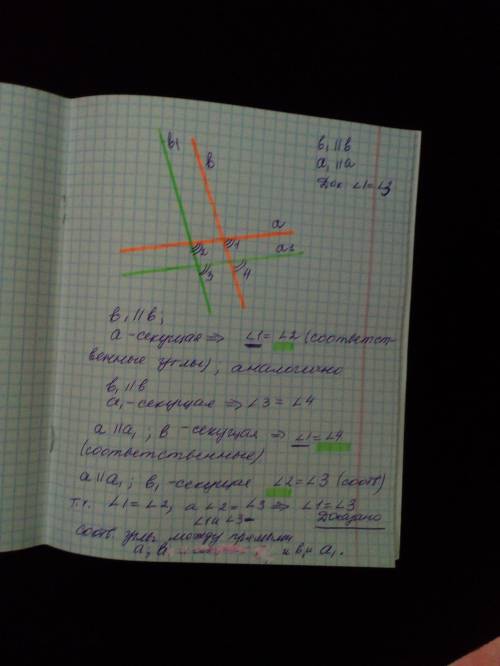 в₁ || в
в₁
в
a₁ || a
Док. ∠1=∠3
a
a₁
2
1
3
4
в₁ || в;
a - секущая ⇒ ∠1 = ∠2 (соответст-
венные углы), аналогично
в₁ || в
a₁ - секущая ⇒ ∠3 = ∠4
a || a₁; в - секущая ⇒ ∠1 = ∠4
(соответственные)
a || a₁; в₁ - секущая ∠2 = ∠3 (соотв)
т.к. ∠1 = ∠2, а ∠2 = ∠3 ⇒ ∠1 = ∠3
∠1 и ∠3 -
Доказано
соотв. углы между прямыми
a, в, и в₁ и a₁.